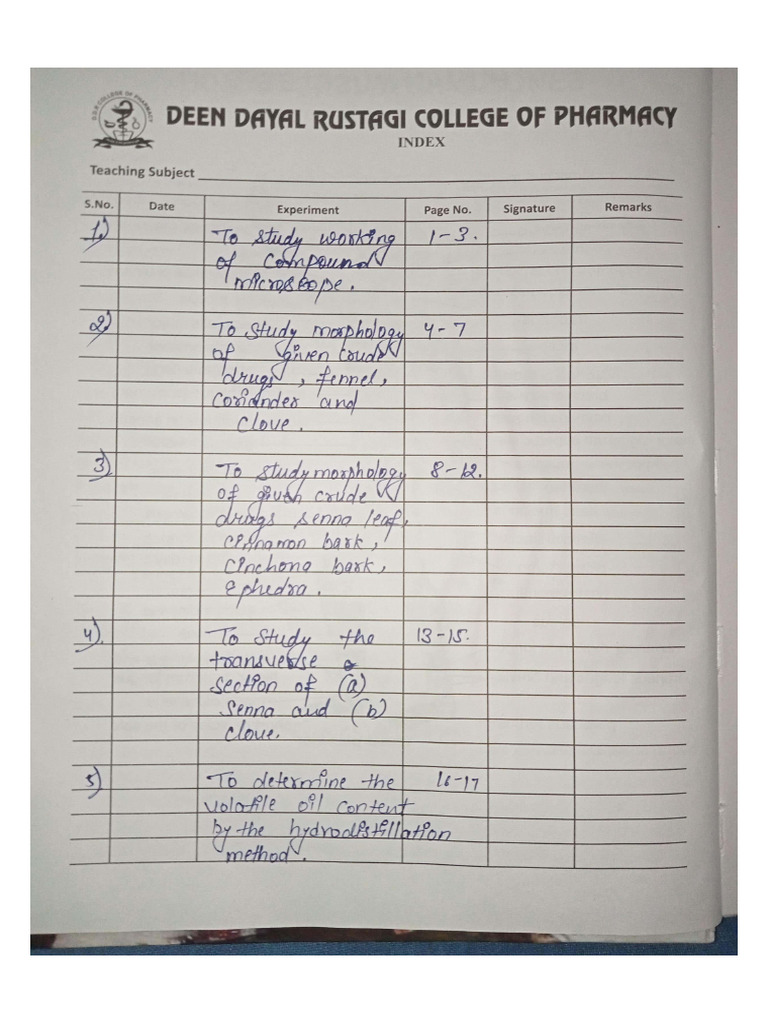 D.D.R COLLEGE OF PHARMACY
DEEN DAYAL RUSTAGI COLLEGE OF PHARMACY
INDEX
Teaching Subject
S.No. Date Experiment Page No. Signature Remarks
1) To study working 1-3.
of compound
microscope.
2) To study morphology 4-7
of given crude
drugs, fennel,
coriander and
clove.
3) To study morphology 8-12.
of given crude
drugs senna leaf,
cinnamon bark,
cinchona bark,
ephedra.
4). To study the 13-15.
transverse
section of (a)
senna and (b)
clove.
5) To determine the 16-17
volatile oil content
by the hydrodistillation
method.